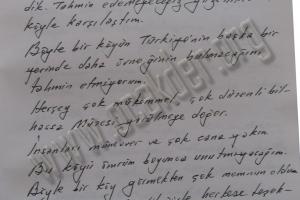 dik. Tahmin edemeyeceğiz
köyle karşılaştım.
Böyle bir köyün Türkiye'nin başka bir
yerinde daha örneğinin bulunacağını
tahmin etmiyorum.
Herşey çok mükemmel çok düzenli bil-
hassa Müzesi görülmeye değer.
İnsanları münevver ve çok cana yakın
Bu köyü ömrüm boyunca unutmuyacağım.
Böyle bir köy görmekten çok memnun oldum
herkese teşek-